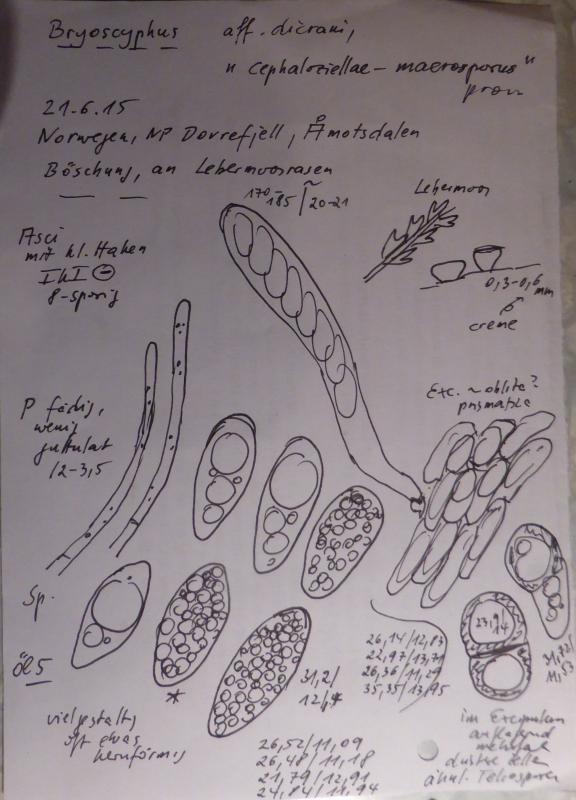 Bryoscyphus aff. dicrani,
"cephaloziellae - macrosporus"
prov
21-6.15
Norwegen, NP Dovrefjell, Åmotsdalen
Böschung, an Lebermoosrasen
170-185/20-21
Lebermoos
Asci
mit kl. Haken
IKI ⊖
8-sporig
0,3-0,6 mm
creme
Exc. ~ oblita?
prismatica
P fädig,
wenig
guttulat
/2-3,5
Sp.
Öl 5
*
31,2/
12,4
26,14/12,83
22,97/13,71
26,36/11,29
35,35/13,95
23,9/
14
31,72/
11,53
vielgestaltig
oft etwas
kernförmig
26,52/11,09
26,48/11,18
21,79/12,91
24,84/11,94
im Excipulum
auffallend
mehrfach
dustre Zellen
ähnl. Teliosporen